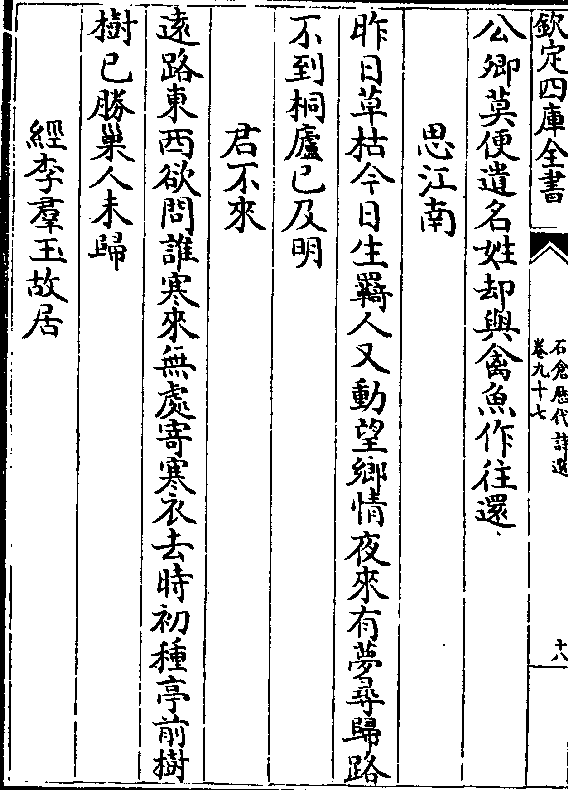 欽定四庫全書
石倉歴代詩選
卷九十七
十八
公卿莫便遺名姓却與禽魚作往還
思江南
昨日草枯今日生羇人又動望鄉情夜來有夢尋歸路
不到桐廬已及明
君不來
遠路東西欲問誰寒來無處寄寒衣去時初種亭前樹
樹已勝巢人未歸
經李羣玉故居